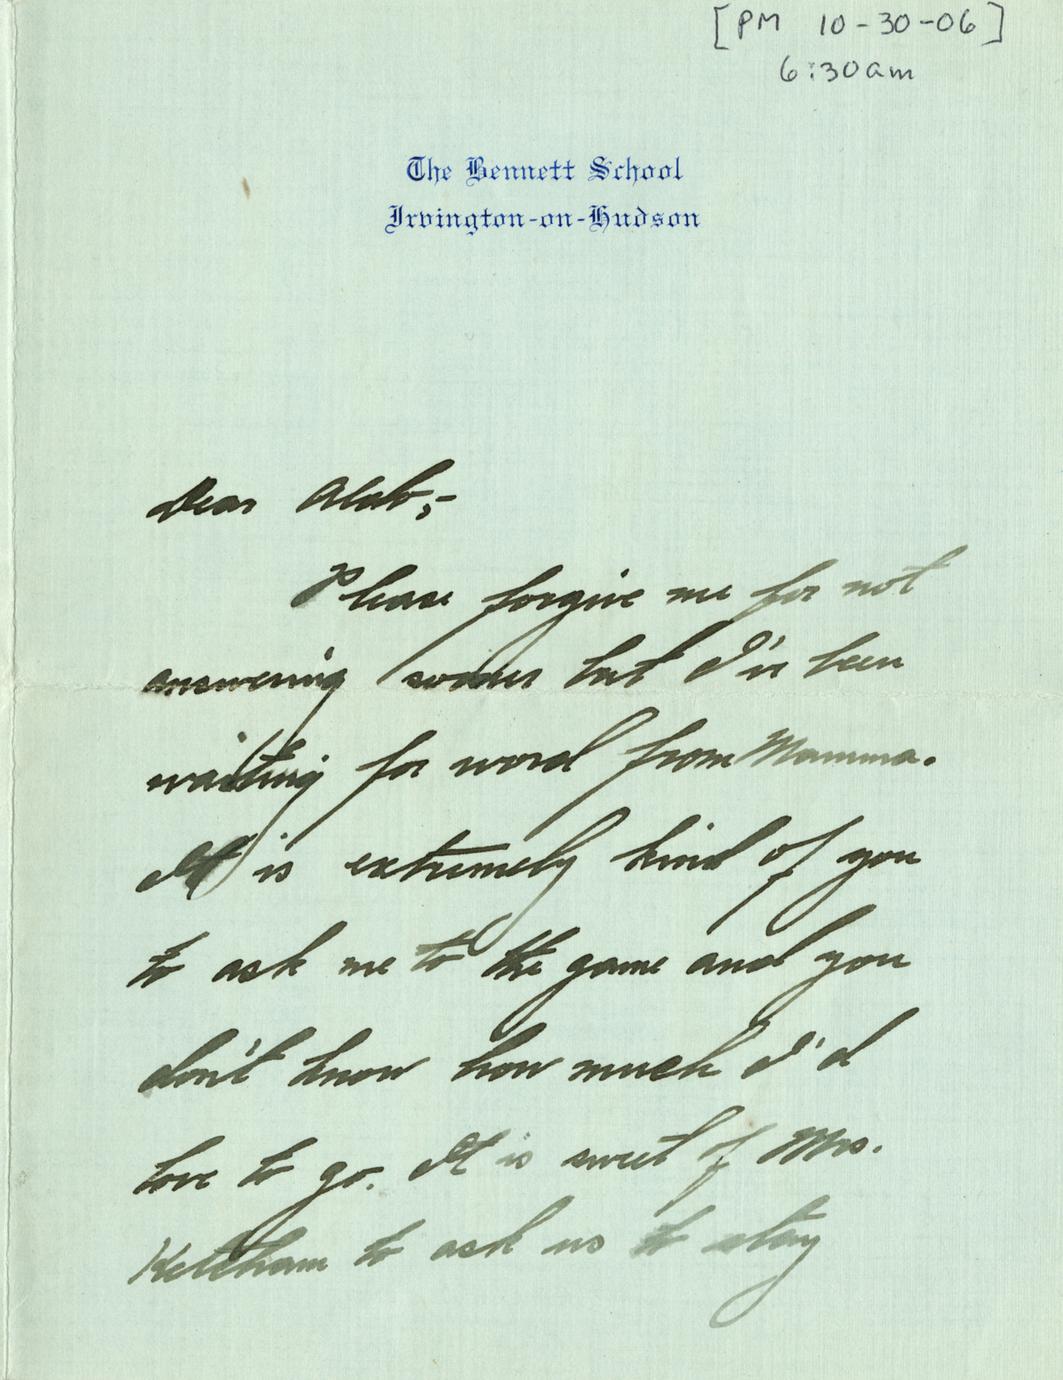 [PM 10-30-06]
6:30am
The Bennett School
Irvington-on-Hudson
Dear Alab;-
Please forgive me for not
answering sooner but I've been
waiting for word from Mamma.
It is extremely kind of you
to ask me to the game and you
don't know how much I'd
love to go. It is sweet of Mrs.
Ketcham to ask us to stay